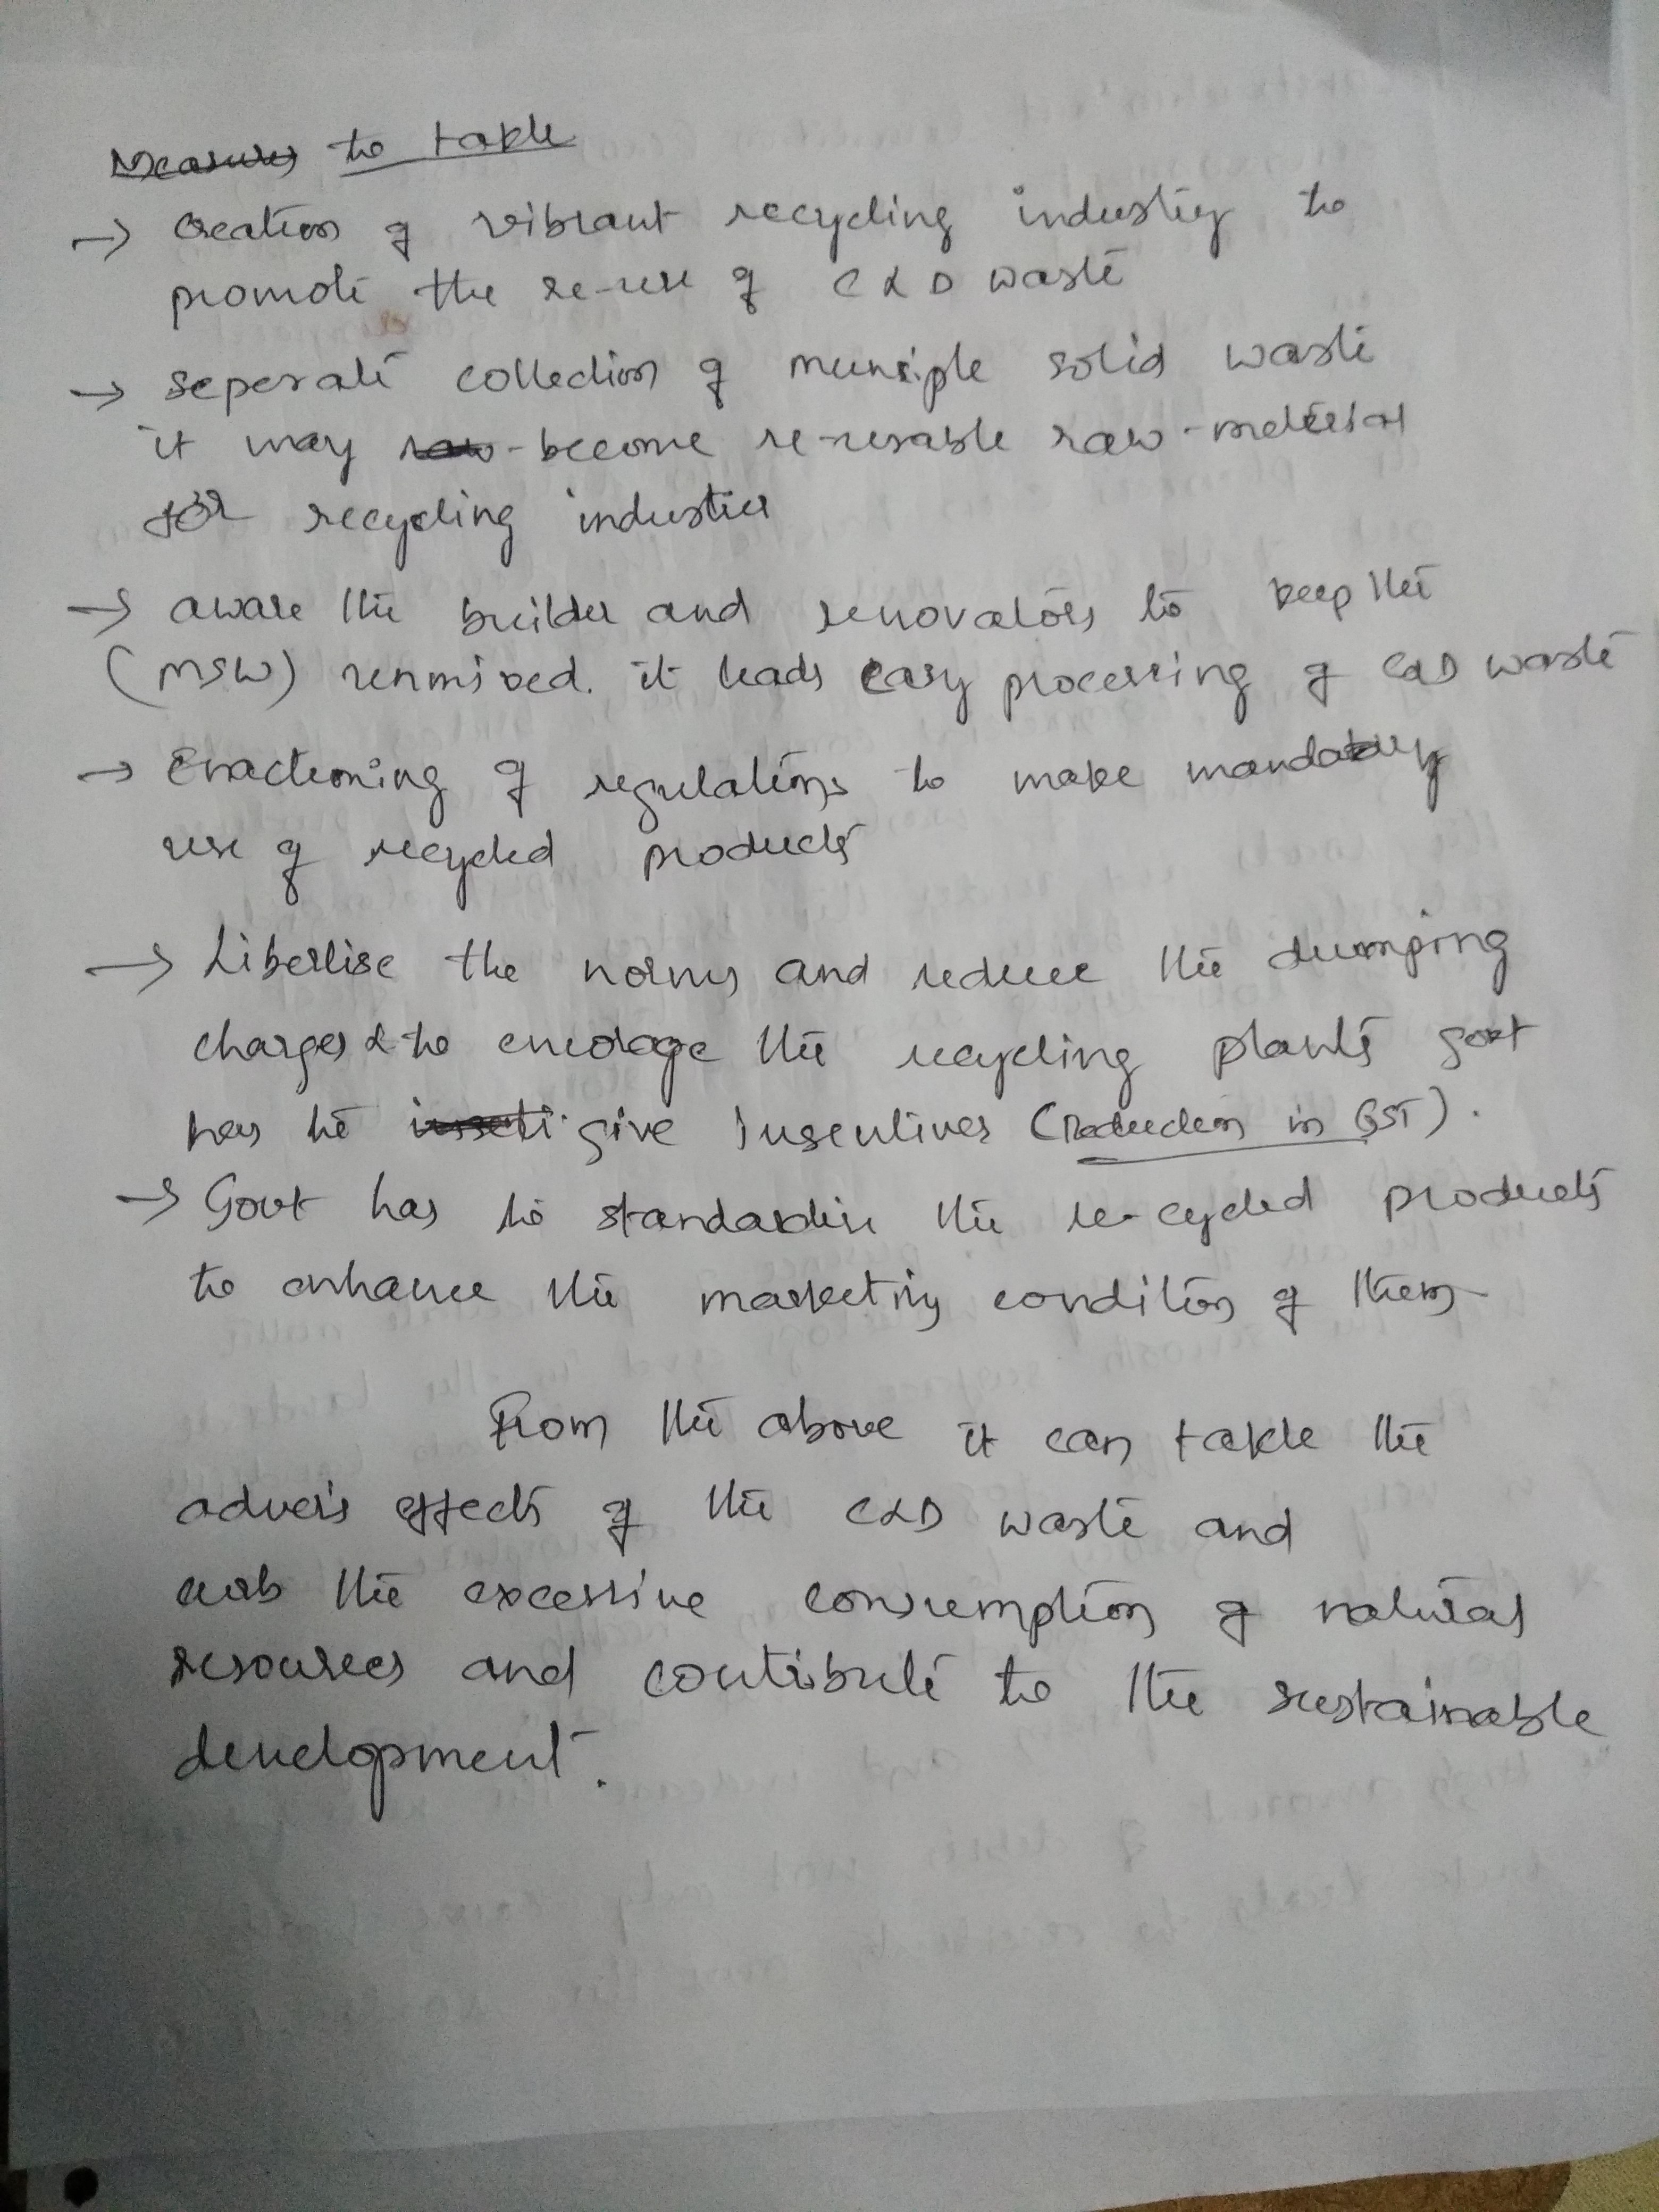 Measures to takle
→ Creation of vibrant recycling industry to
promote the re-use of C & D waste
→ seperate collection of munsiple solid waste
it may become re-usable raw-meterial
for recycling industies
→ aware the builder and renovators to keep the
(MSW) unmixed. it leads easy processing of C&D waste
→ Enactioning of regulations to make mandatory
use of recycled products
→ Liberlise the norms and reduce the dumping
charges & to encorage the recycling plants govt
has to give Insentives (Reduction in GST).
→ Govt has to standardise the re-cycled products
to enhance the marketing condition of them
From the above it can takle the
advers effects of the C&D waste and
curb the excessive consumption of natural
resources and contribute to the sustainable
development.